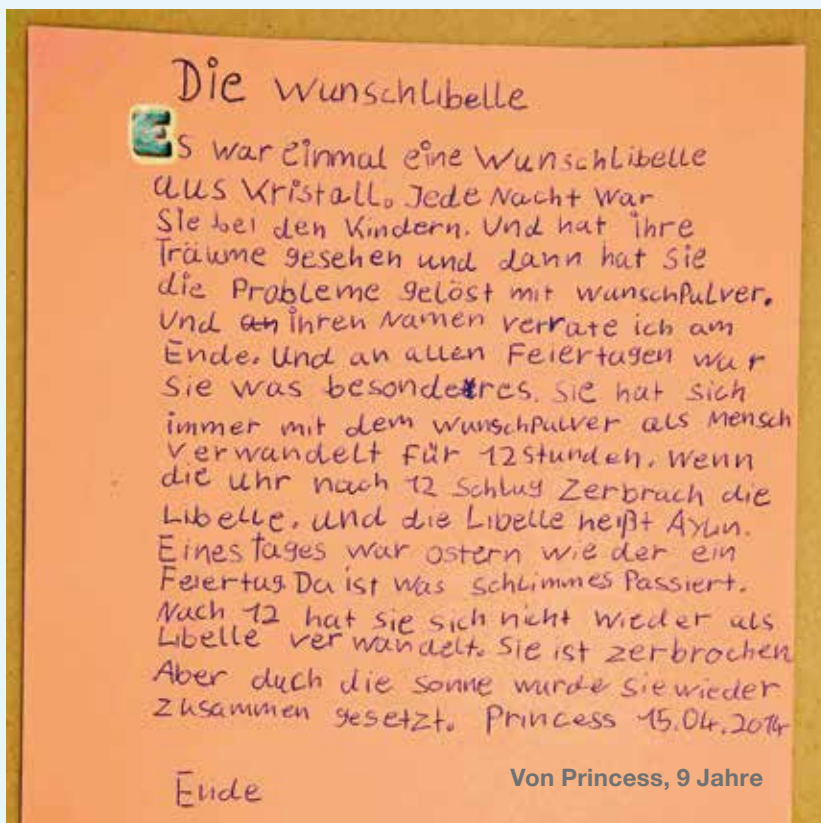 Die Wunschlibelle
Es war einmal eine Wunschlibelle
aus Kristall. Jede Nacht war
Sie bei den Kindern. Und hat ihre
Träume gesehen und dann hat sie
die Probleme gelöst mit Wunschpulver.
Und an ihren Namen verrate ich am
Ende. Und an allen Feiertagen war
Sie was besonderes. Sie hat sich
immer mit dem Wunschpulver als Mensch
verwandelt für 12 Stunden. Wenn
die Uhr nach 12 Schlug Zerbrach die
Libelle. und die Libelle heißt Aylin.
Eines Tages war ostern wieder ein
Feiertag. Da ist was schlimmes Passiert.
Nach 12 hat sie sich nicht wieder als
Libelle verwandelt. Sie ist zerbrochen
Aber duch die Sonne wurde sie wieder
zusammen gesetzt. Princess 15.04.2014
Ende
Von Princess, 9 Jahre